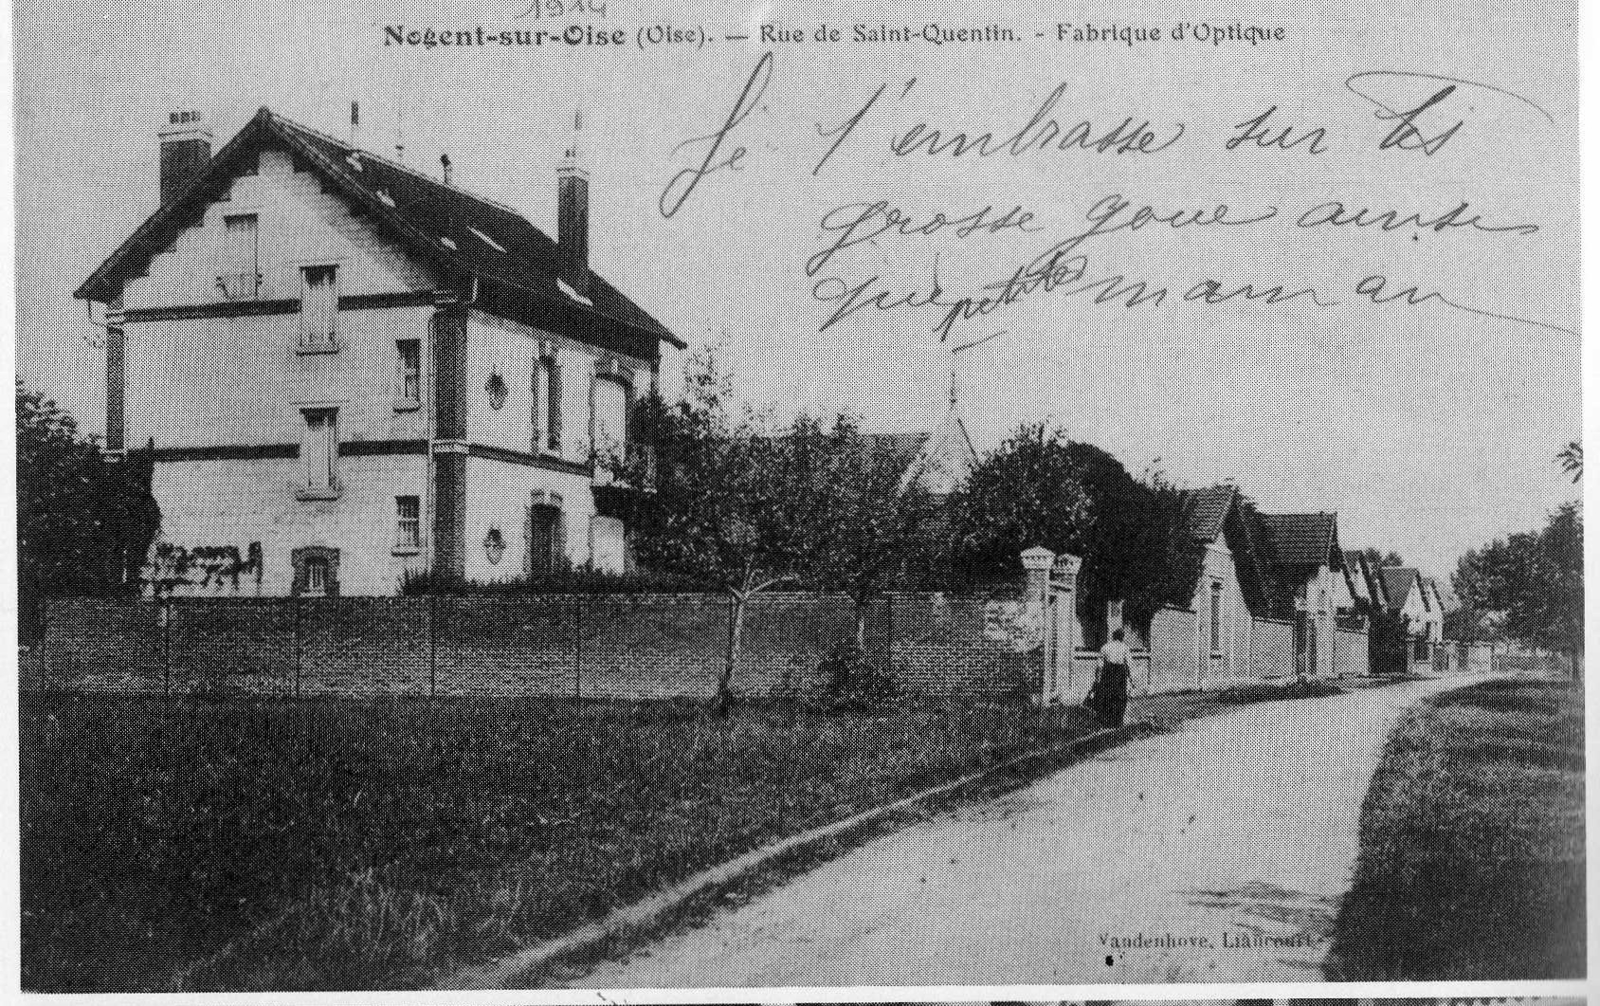 1914
Nogent-sur-Oise (Oise). — Rue de Saint-Quentin. - Fabrique d'Optique
Je t'embrasse sur tes
grosse goue ainsi
que petite maman
Vandenhove, Liancourt